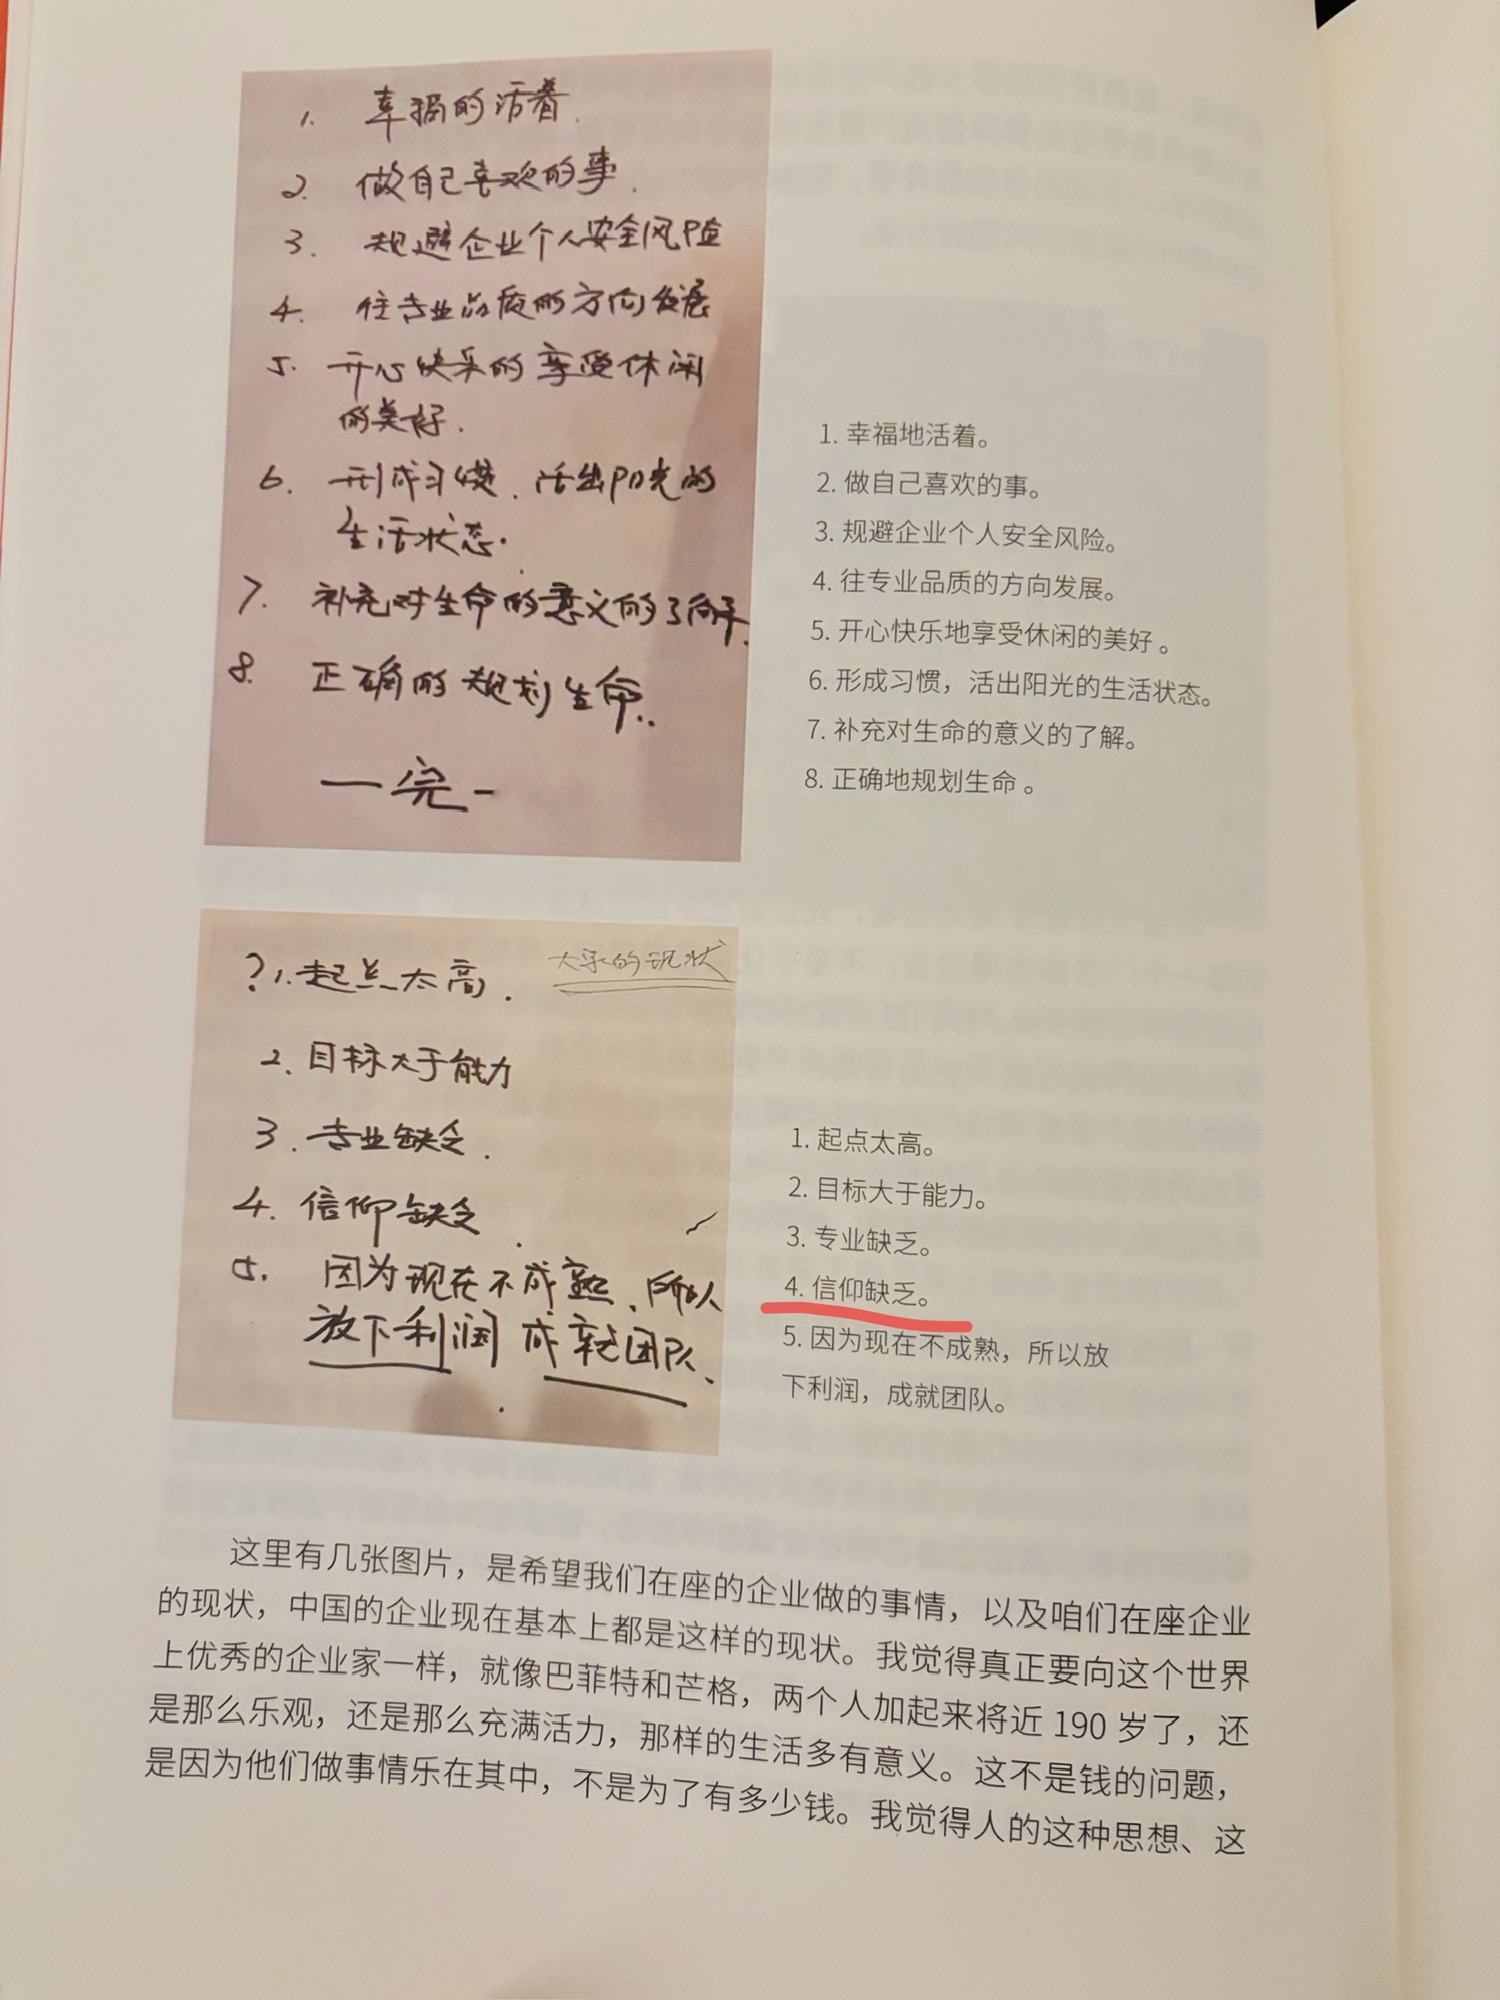 1. 幸福的活着.
2. 做自己喜欢的事.
3. 规避企业个人安全风险
4. 往专业品质的方向发展
5. 开心快乐的享受休闲
的美好.
6. 形成习惯. 活出阳光的
生活状态.
7. 补充对生命的意义的了解.
8. 正确的规划生命..
一完-
1. 幸福地活着。
2. 做自己喜欢的事。
3. 规避企业个人安全风险。
4. 往专业品质的方向发展。
5. 开心快乐地享受休闲的美好。
6. 形成习惯，活出阳光的生活状态。
7. 补充对生命的意义的了解。
8. 正确地规划生命。
大家的现状
? 1. 起点太高.
2. 目标大于能力
3. 专业缺乏.
4. 信仰缺乏.
5. 因为现在不成熟、所以
放下利润 成就团队、
1. 起点太高。
2. 目标大于能力。
3. 专业缺乏。
4. 信仰缺乏。
5. 因为现在不成熟，所以放
下利润，成就团队。
这里有几张图片，是希望我们在座的企业做的事情，以及咱们在座企业
的现状，中国的企业现在基本上都是这样的现状。我觉得真正要向这个世界
上优秀的企业家一样，就像巴菲特和芒格，两个人加起来将近 190 岁了，还
是那么乐观，还是那么充满活力，那样的生活多有意义。这不是钱的问题，
是因为他们做事情乐在其中，不是为了有多少钱。我觉得人的这种思想、这